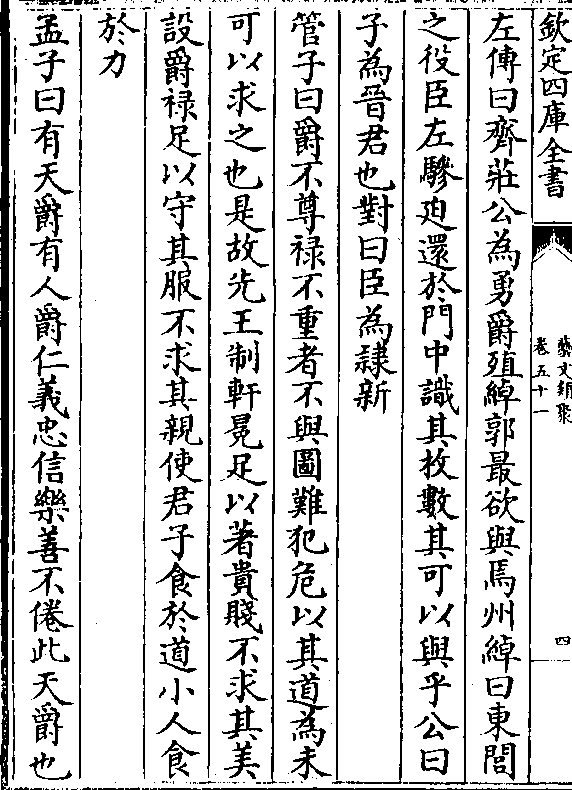 欽定四庫全書
藝文類聚
卷五十一
四
左傳曰齊莊公為勇爵殖綽郭最欲與焉州綽曰東閭
之役臣左驂迫還於門中識其枚數其可以與乎公曰
子為晉君也對曰臣為隷新
管子曰爵不尊禄不重者不與圖難犯危以其道為未
可以求之也是故先王制軒冕足以著貴賤不求其美
設爵禄足以守其服不求其親使君子食於道小人食
於力
孟子曰有天爵有人爵仁義忠信樂善不倦此天爵也